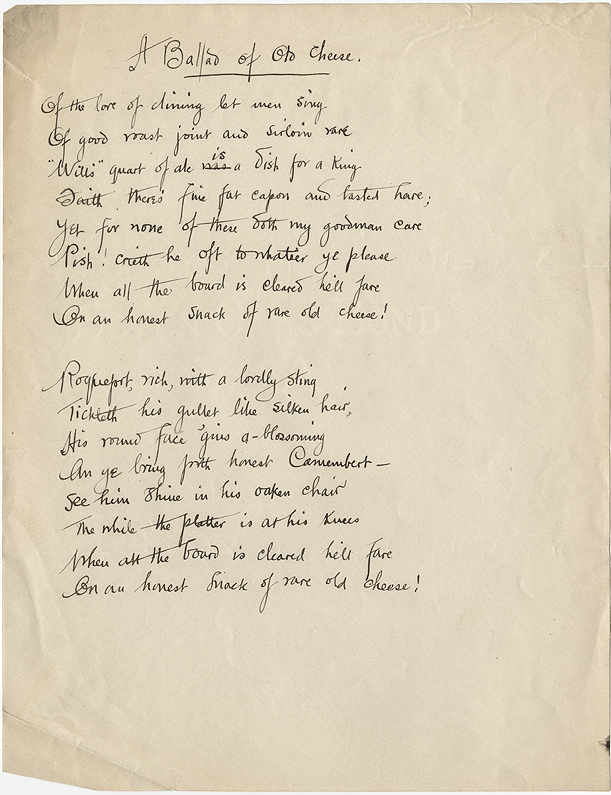 A Ballad of Old Cheese.
Of the love of dining let men sing
Of good roast joint and sirloin rare
"Wills" quart of ale was is a dish for a King
Faith there's fine fat capon and tasted hare;
Yet for none of these doth my goodman care
Pish! crieth he oft to whate'er ye please
When all the board is cleared he'll fare
On an honest snack of rare old cheese!
Roquefort, rich, with a lordly sting
Tickleth his gullet like silken hair,
His round face 'gins a-blossoming
An ye bring forth honest Camembert—
See him shine in his oaken chair
The while the platter is at his knees
When all the board is cleared he'll fare
On an honest snack of rare old cheese!